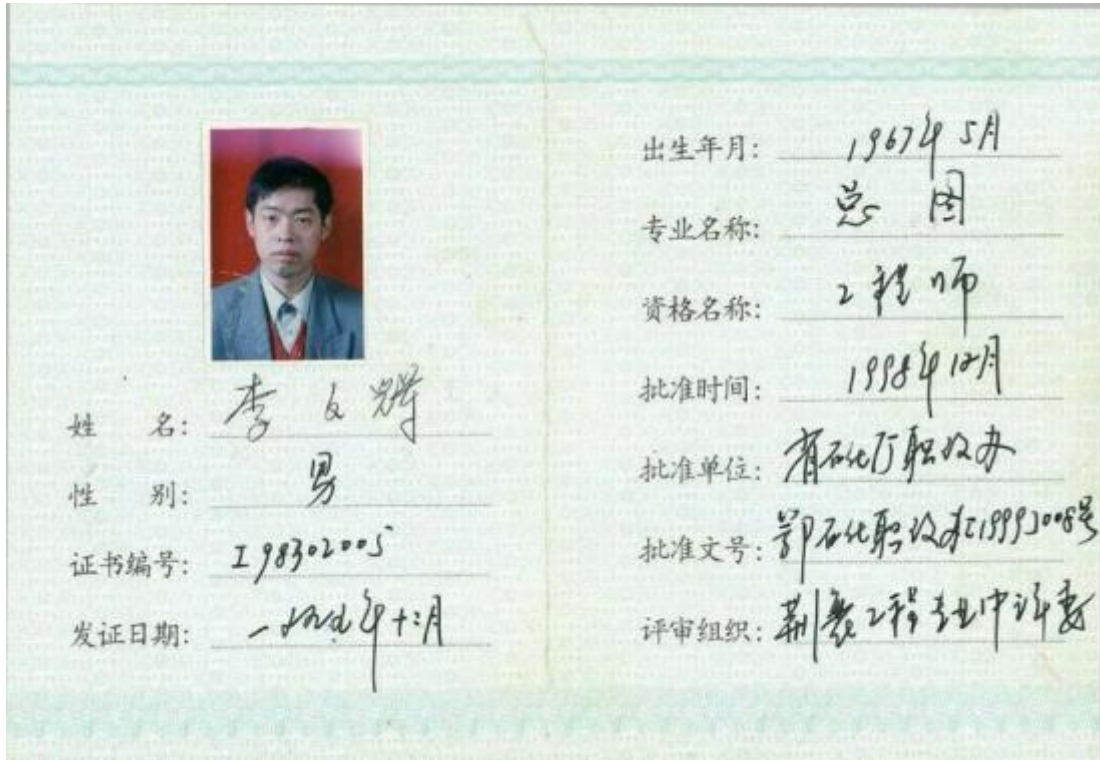 姓 名: 李文辉
性 别: 男
证书编号: I98302005
发证日期: 一九九八年十二月
出生年月: 1967年5月
专业名称: 总图
资格名称: 工程师
批准时间: 1998年12月
批准单位: 省石化厅职改办
批准文号: 鄂石化职改办[1999]008号
评审组织: 荆襄工程专业中评委